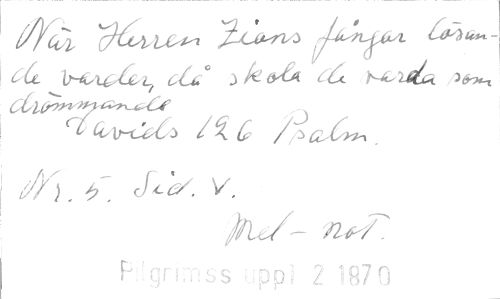 När Herren Zions fångar lösan-
de varder, då skola de varda som
drömmande
Davids 126 Psalm.
Nr. 5. Sid. V.
Mel-not.
Pilgrimss uppl 2 1870